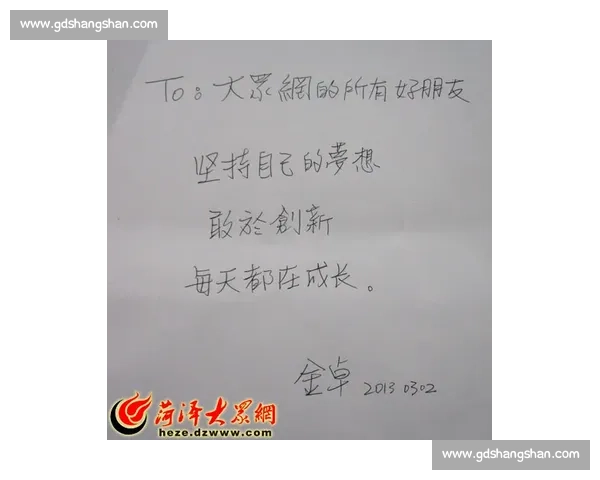 www.gdshangshan.com
To: 大眾網的所有好朋友
坚持自己的夢想
敢於創新
每天都在成长。
金卓 2013 0302
菏泽大眾網
heze.dzwww.com
www.gdshangshan.com